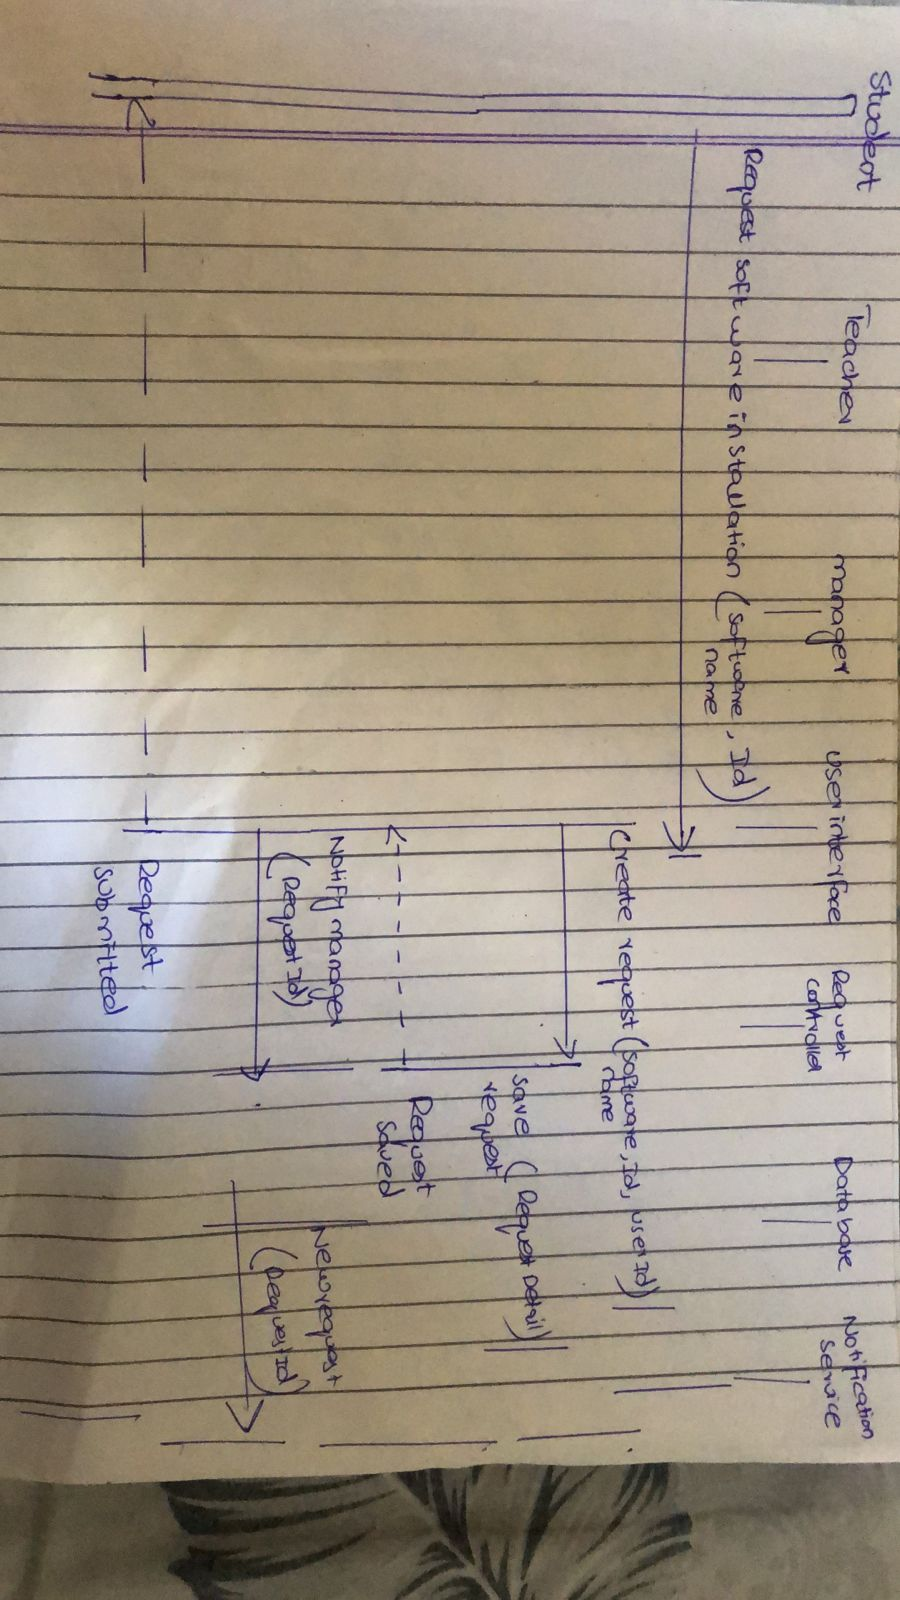 Student
Teacher
manager
user interface
Request
controller
Database
Notification
service
Request software installation (software, Id)
name
Create request (software, Id, user Id)
name
save (Request Detail)
request
Request
saved
Notify manager
(Request Id)
New request
(Request Id)
Request
submitted